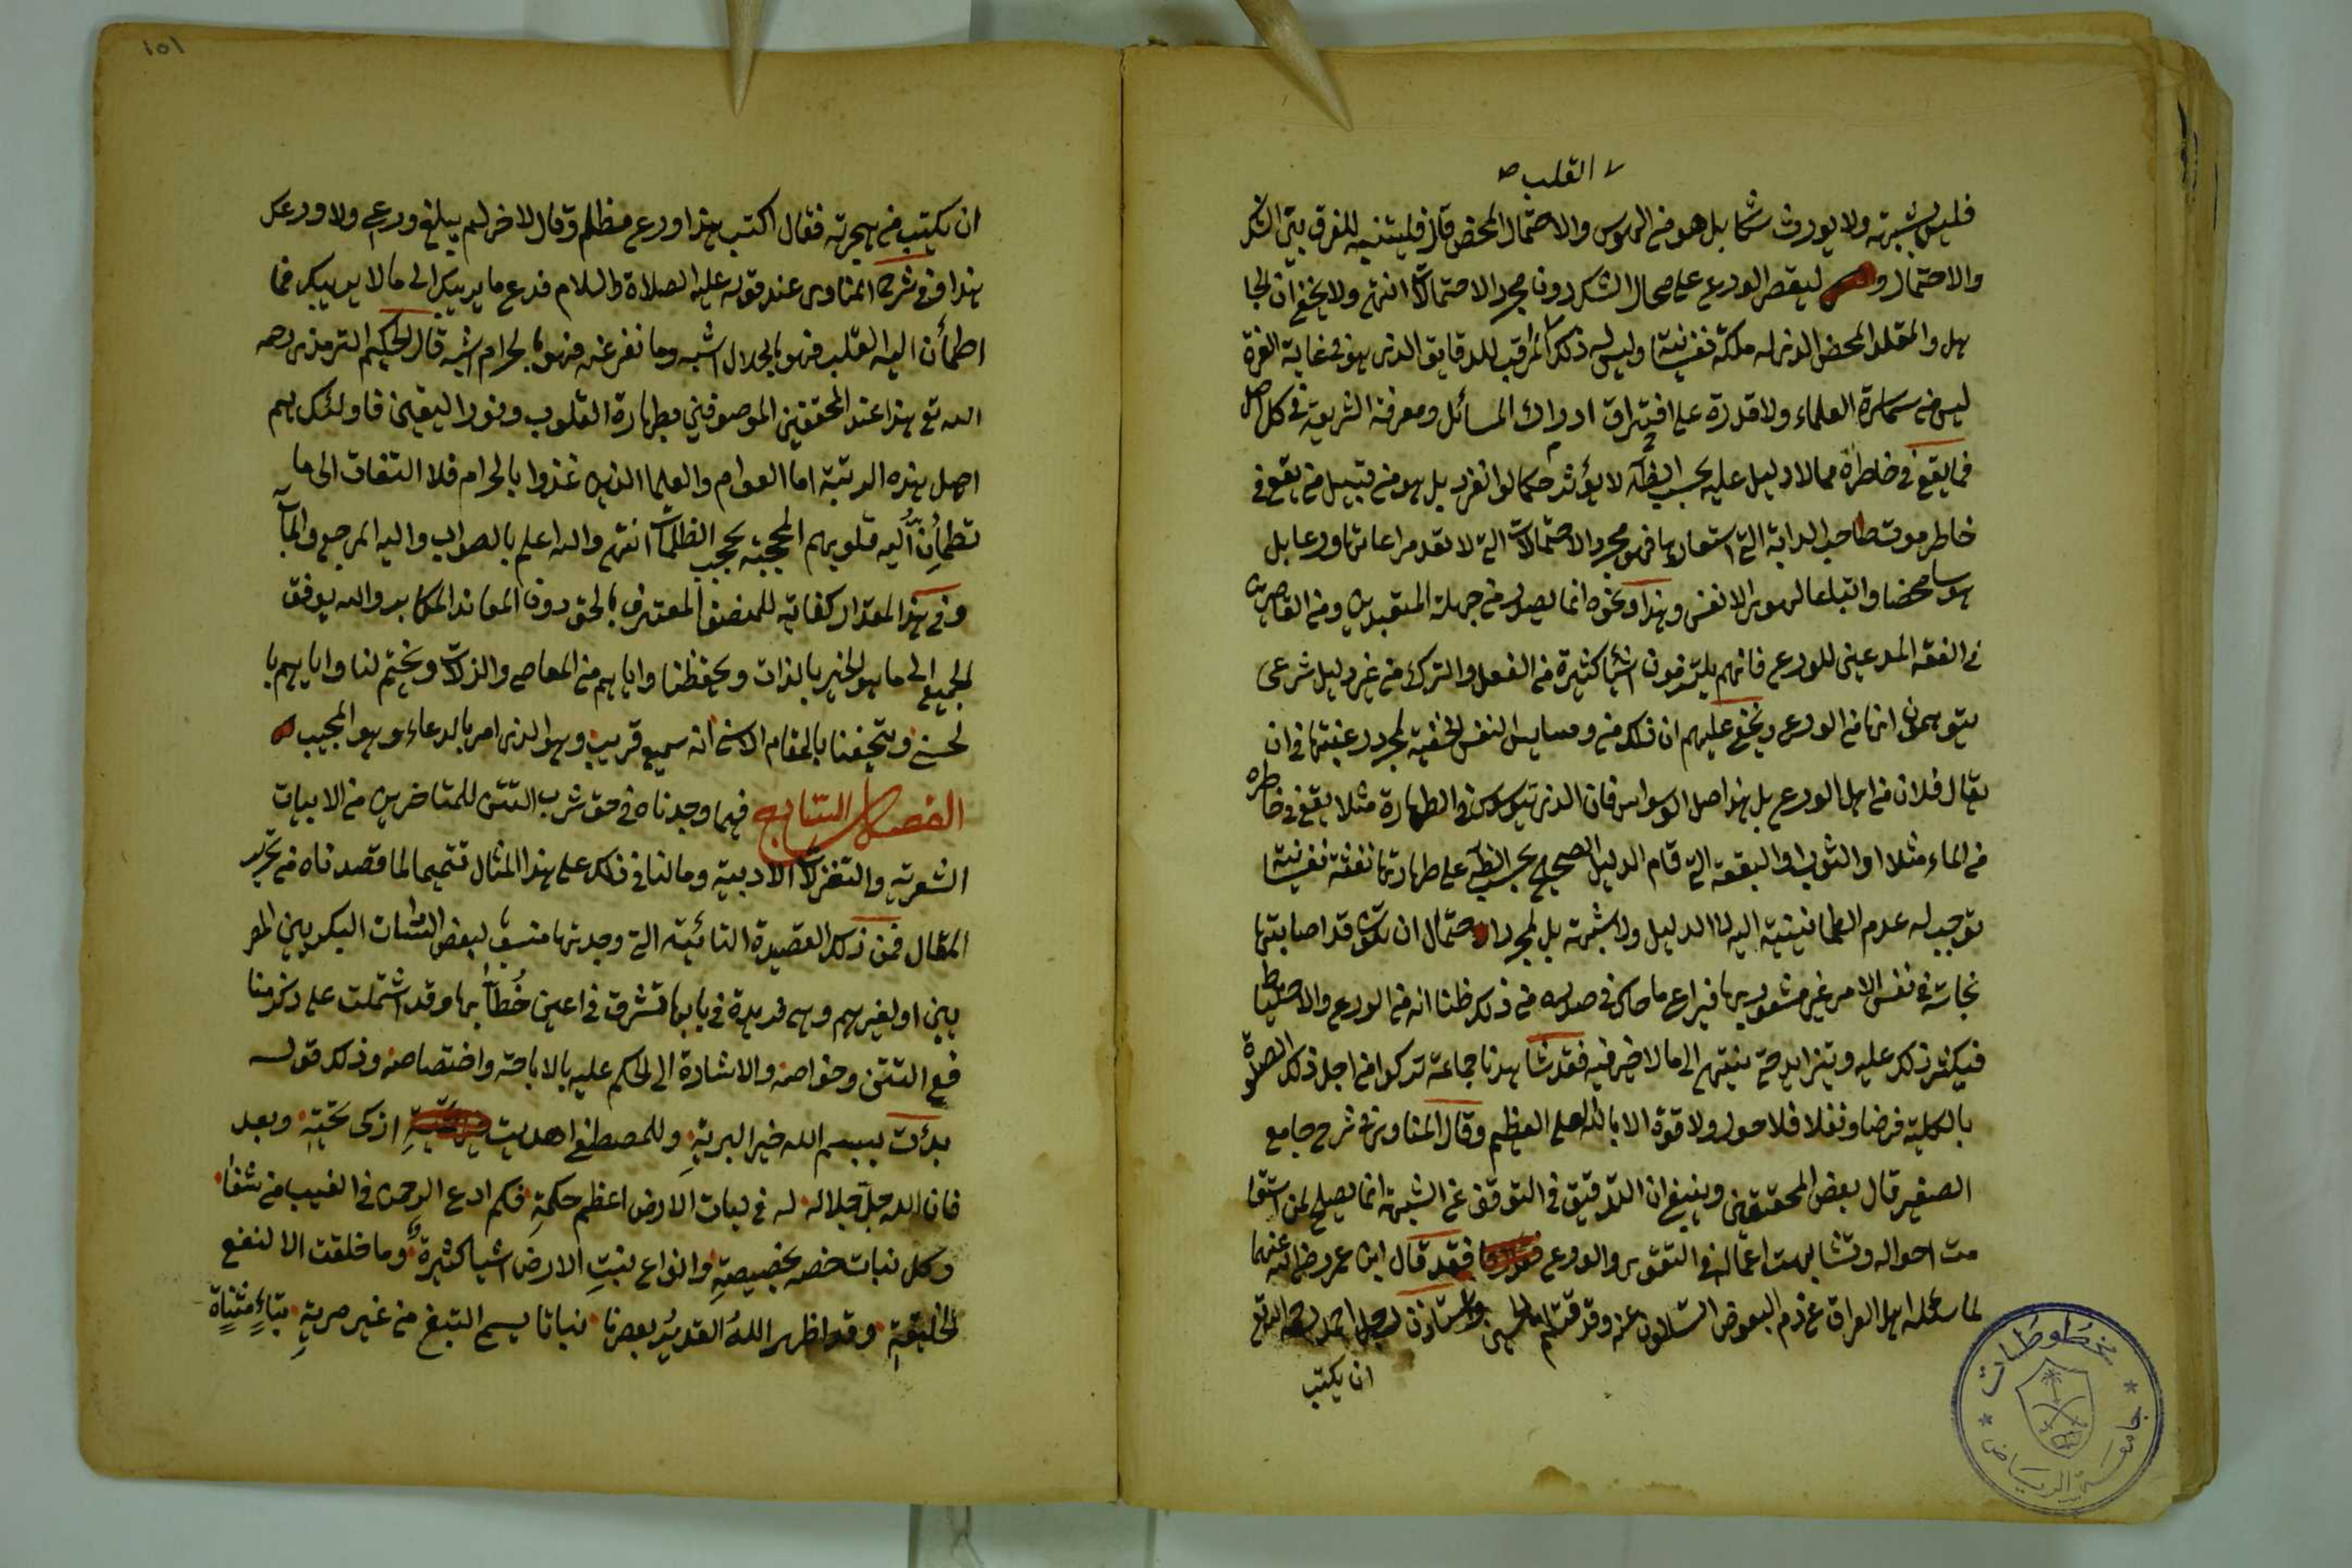 القلب صح
فليس بشبهة ولا يورث شكا بل هو من الهوس والاحتمال المحض قال فليتنبه للفرق بين الشك
والاحتمال و ليقصر الورع على محال الشك دون مجرد الاحتمالات انتهى ولا يخفى ان الجا
هل والمقلد المحض الذي له ملكة نفسانية وليس له ذكر المراقب للدقايق الذي هو في غاية العزة
ليس من سماسرة العلماء ولا قدرة على افتراق ادراك المسائل ومعرفة الشريعة في كل اصل
فما يقع في خاطره مما لا دليل عليه بحسب الظاهر لا يؤثر حكما لو انفرد بل هو من قبيل من يقع في
خاطره موت صاحب الدابة التي استعارها فهو مجرد الاحتمالات التي لا تعد مراعاتها ورعا بل
هوسا محضا واتباعا لهوى الانفس وهذا ونحوه انما يصدر من جهلة المتعبدين ومن القاصرين
في الفقه المدعين للورع فانهم يلتزمون اشياء كثيرة من الفعل والترك من غير دليل شرعي
يتوهمون انها من الورع ويخفى عليهم ان ذلك من دسايس النفس الخفية لمجرد رغبتها في ان
يقال فلان من اهل الورع بل هذا اصل الوسواس فان الذي يتوسوس في الطهارة مثلا يقع في خاطره
من الماء مثلا او الثوب او البقعة التي قام الدليل الصحيح بحسب الظاهر على طهارتها نفثة نفسانية
توجب له عدم الطمانينة اليه لا لدليل ولا شبهة بل لمجرد احتمال ان تكون قد اصابتها
نجاسة في نفس الامر غير مشعور بها فيراعي ما حاك في صدره من ذلك ظنا انه من الورع والاحتياط
فيكثر ذلك عليه ويتزايد حتى ينتهي الى ما لا خير فيه فقد شاهدنا جماعة تركوا من اجل ذلك الصلوة
بالكلية فرضا ونفلا فلا حول ولا قوة الا بالله العلي العظيم وقال المناوي في شرح جامع
الصغير قال بعض المحققين وينبغي ان التدقيق في التوقف عن الشبهة انما يصلح لمن استقا
مت احواله وتشابهت اعماله في التقوى والورع فقد قال ابن عمر رضي الله عنهما
لما سأله اهل العراق عن دم البعوض تسألون عنه وقد قتلتم الحسين واستأذن رجل احمد
ان يكتب
١٥١
ان يكتب من محبرته فقال اكتب هذا ورع مظلم وقال لاخر لم يبلغ ورعي ولا ورعك
هذا وفي شرح المناوي عند قوله عليه الصلاة والسلام فدع ما يريبك الى ما لا يريبك فما
اطمأن اليه القلب فهو بالحلال اشبه وما نفر عنه فهو بالحرام اشبه قال الحكيم الترمذي رحمه
الله تع هذا عند المحققين الموصوفين بطهارة القلوب ونور اليقين فاولئك هم
اهل هذه الرتبة اما العوام والعلما الذين غذوا بالحرام فلا التفات الى ما
تطمئن اليه قلوبهم المحجبة بحجب الظلمات انتهى والله اعلم بالصواب واليه المرجع والمآب
وفي هذا المقدار كفاية للمنصف المعترف بالحق دون المعاند المكابر والله يوفق
الجميع الى ما هو الخير بالذات ويحفظنا واياهم من المعاصي والزلات ويختم لنا واياهم با
لحسنى ويتحفنا بالمقام الاسنى انه سميع قريب وهو الذي امر بالدعاء وهو المجيب
الفصل السابع فيما وجدناه في حق شرب التتن للمتاخرين من الابيات
الشعرية والتغزلات الادبية ومالنا في ذلك على هذا المثال تتميما لما قصدناه من تحرير
المقال فمن ذلك القصيدة التائية التي وجدتها منسوبة لبعض السادات البكريين المصر
يين او لغيرهم وهي فريدة في بابها تشرق في اعين خُطّابها وقد اشتملت على ذكر منا
فع التتن وخواصه والاشارة الى الحكم عليه بالاباحة واختصاصه وذلك قوله
بدأت ببسم الله خير البرية وللمصطفى اهديت ازكى تحية وبعد
فان الله جل جلاله له في نبات الارض اعظم حكمة فكم ادع الرحمن في الغيب من شفا
وكل نبات خصه بخصيصة وانواع نبت الارض اشيا كثيرة وما خلقت الا لنفع
الخليقة وقد اظهر الله القدير بعصرنا نباتا يسمى التبغ من غير مرية بتاءٍ مثناة
مخطوطات
جامعة الرياض